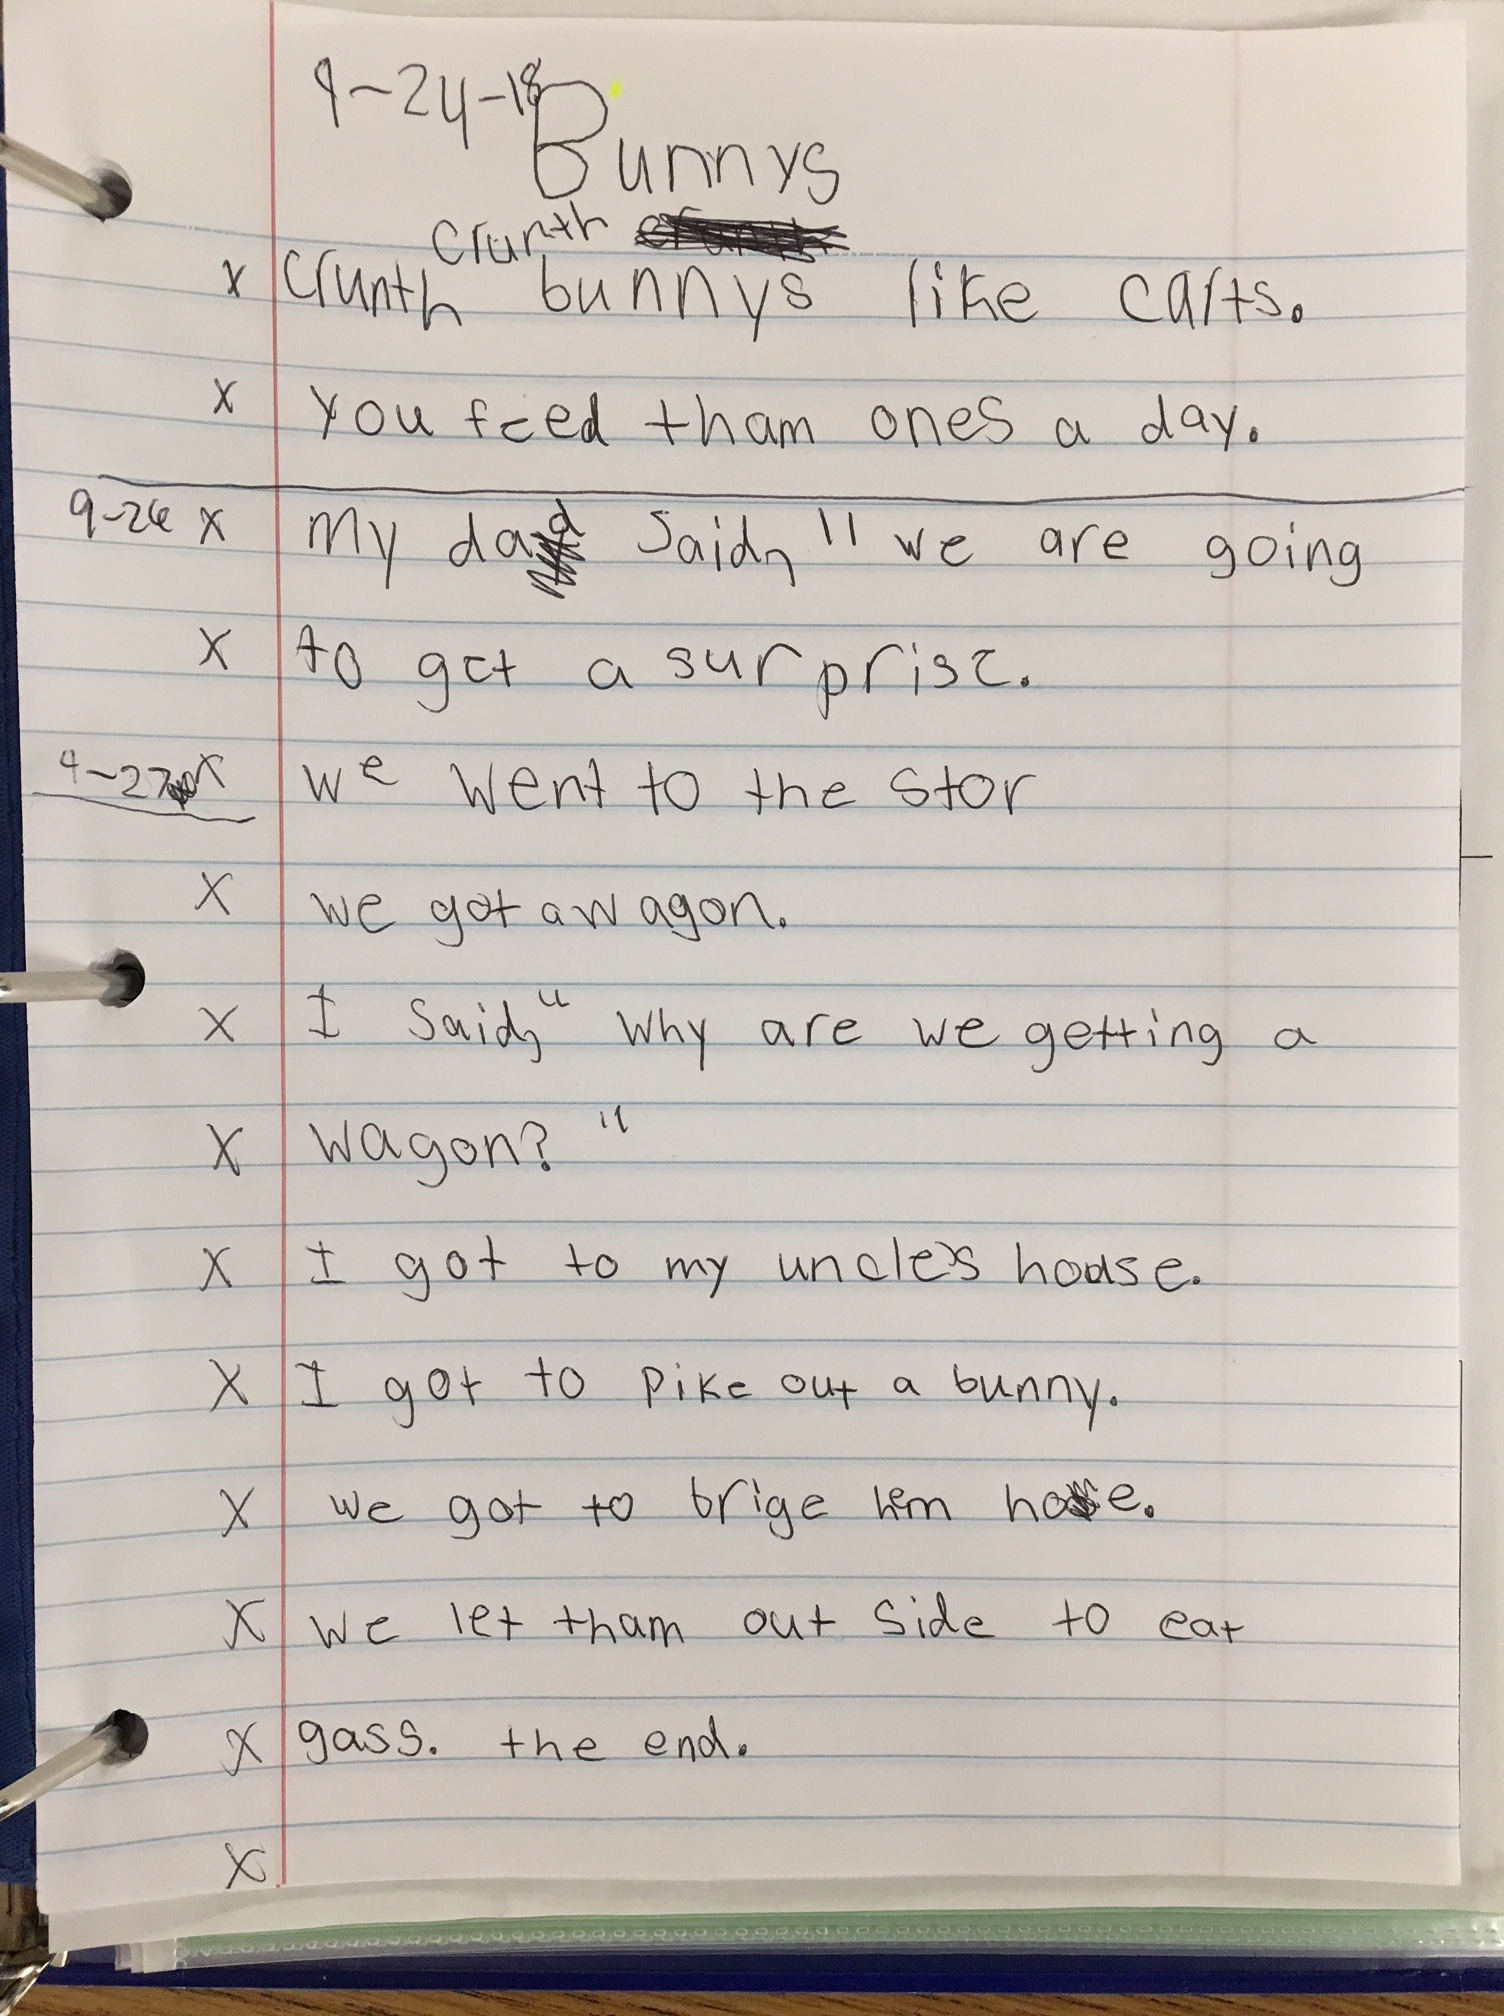 9-24-18
Bunnys
crunth
x crunth bunnys like carts.
x you feed tham ones a day.
9-26 x my dad said, " we are going
x to get a surprise.
9-27 x we went to the stor
x we got a wagon.
x I said, " why are we getting a
x wagon? "
x I got to my uncle's house.
x I got to pike out a bunny.
x we got to brige him
x we let tham out side to eat
x gass. the end.
x